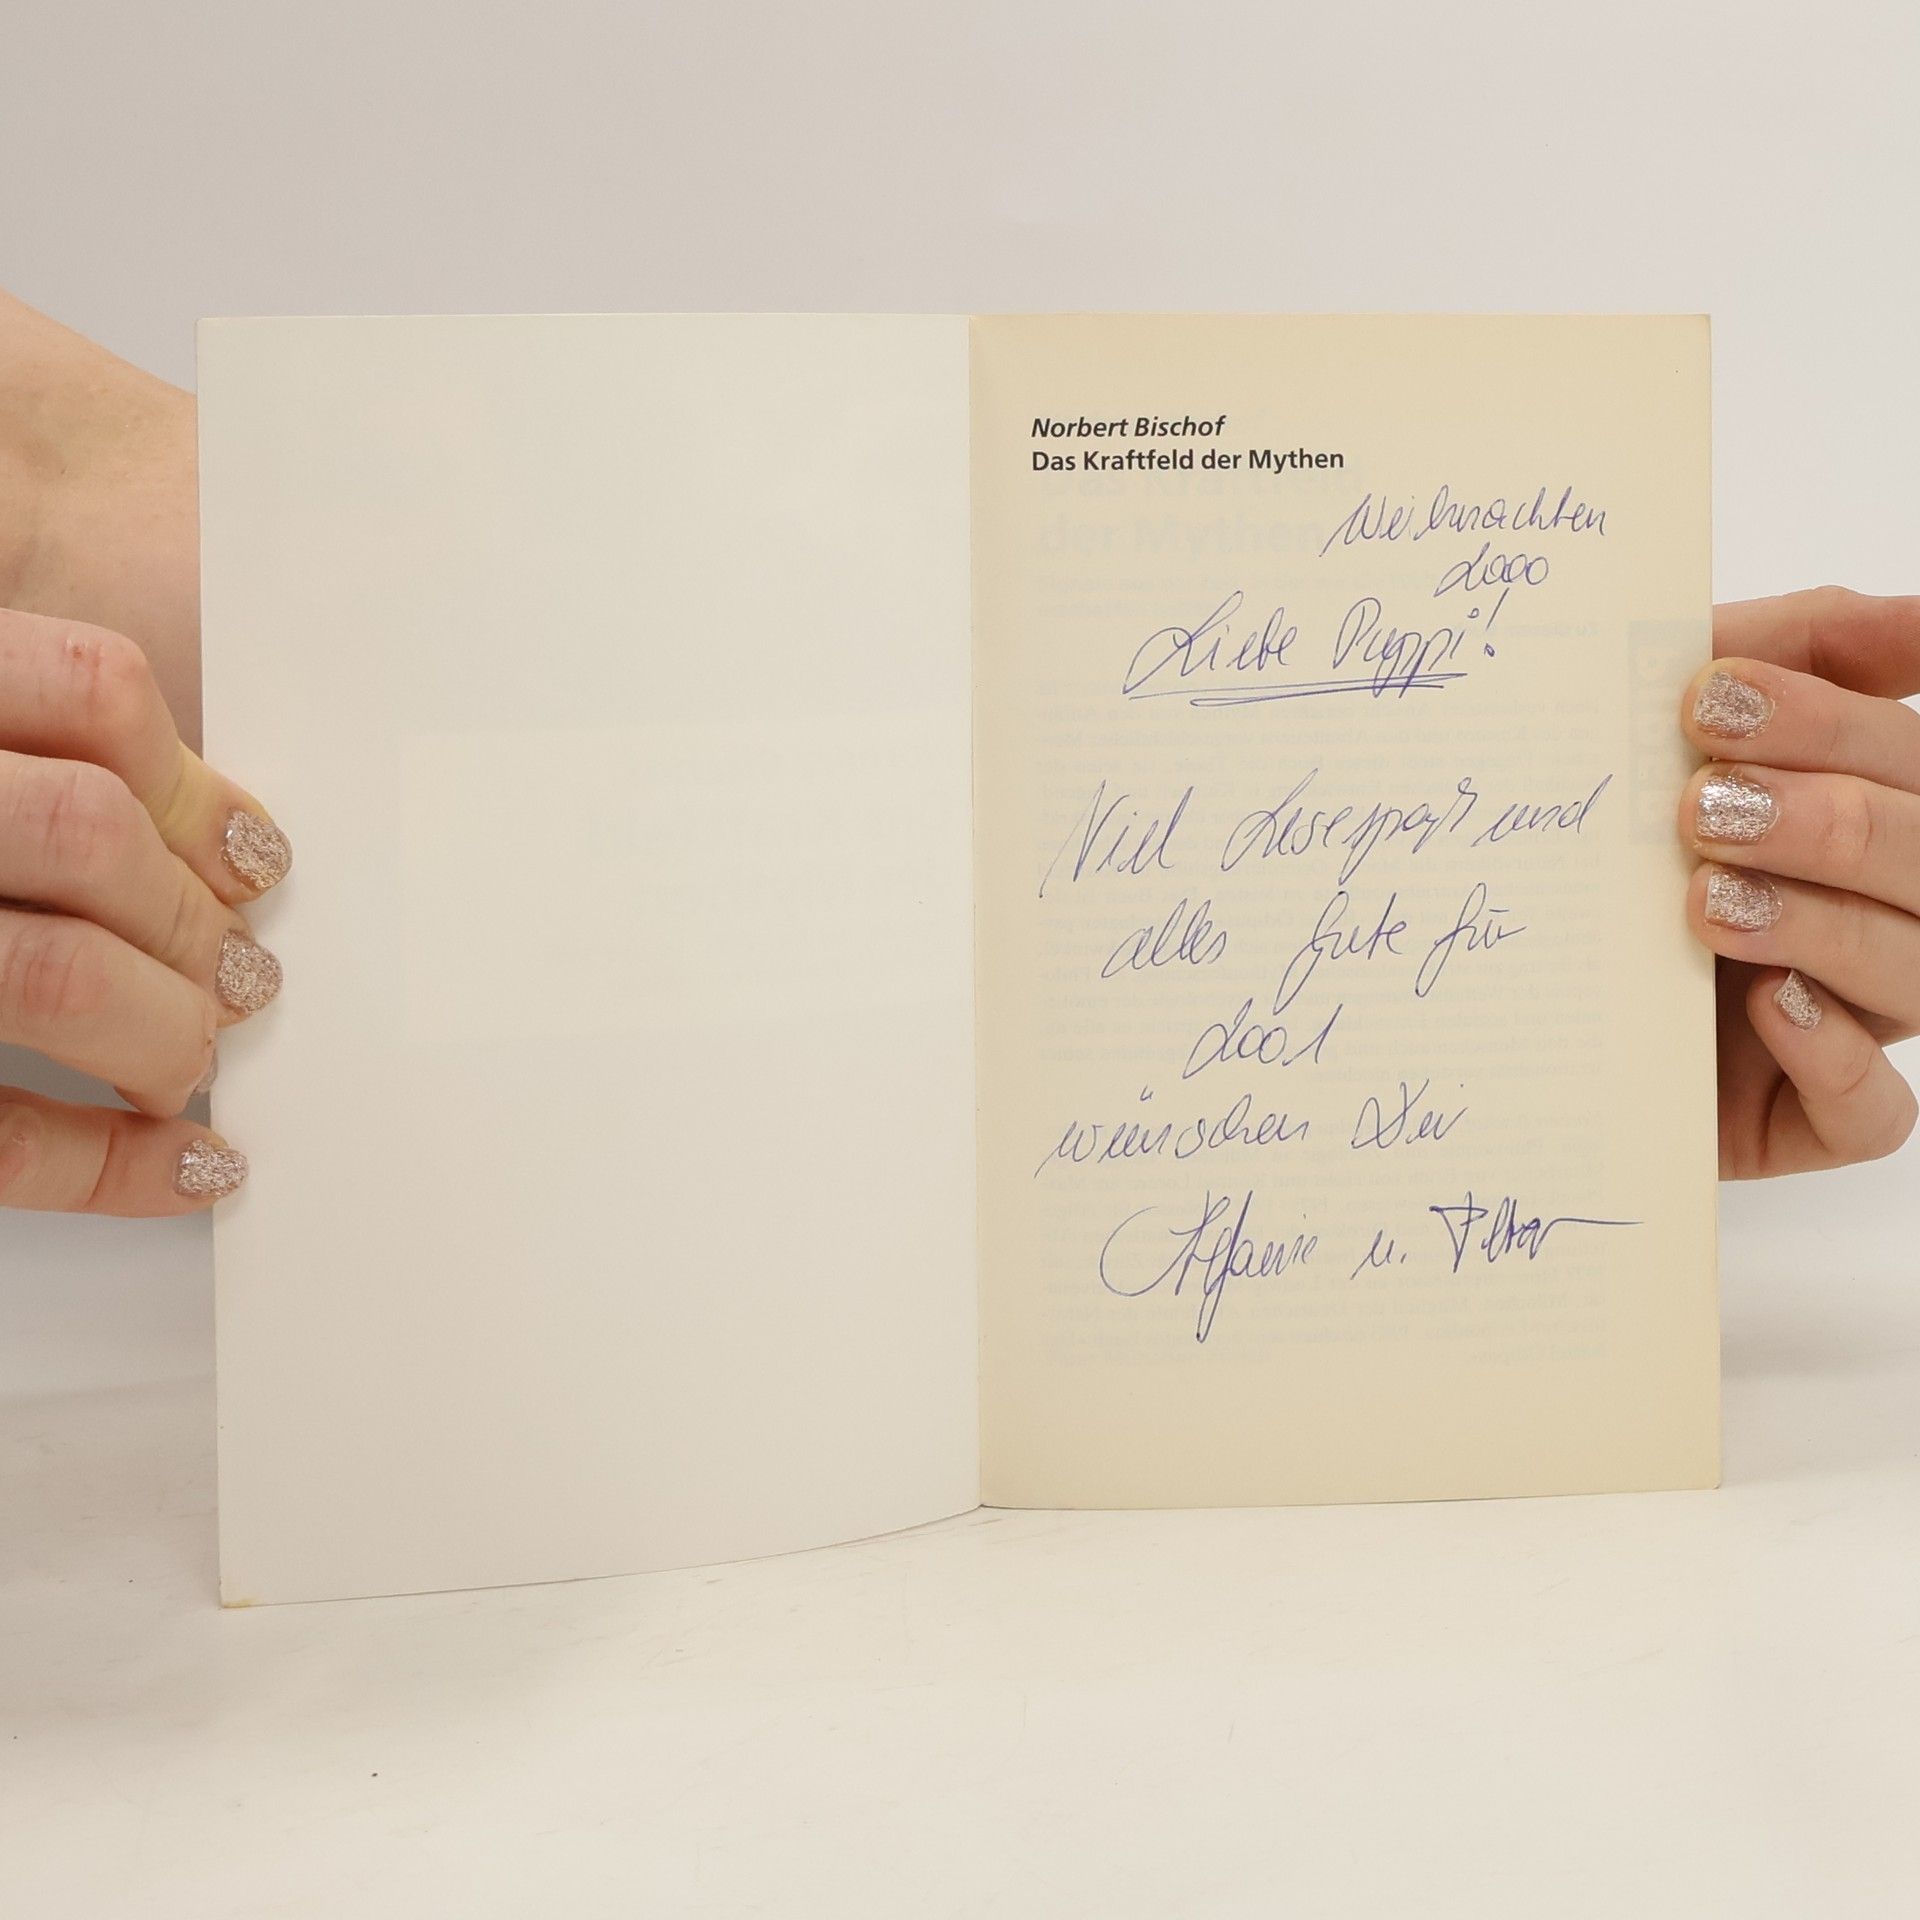 Norbert Bischof
Das Kraftfeld der Mythen
Weihnachten
2000
Liebe Puppi!
Viel Lesespaß und
alles Gute für
2001
wünschen Dir
Stefanie u. Peter